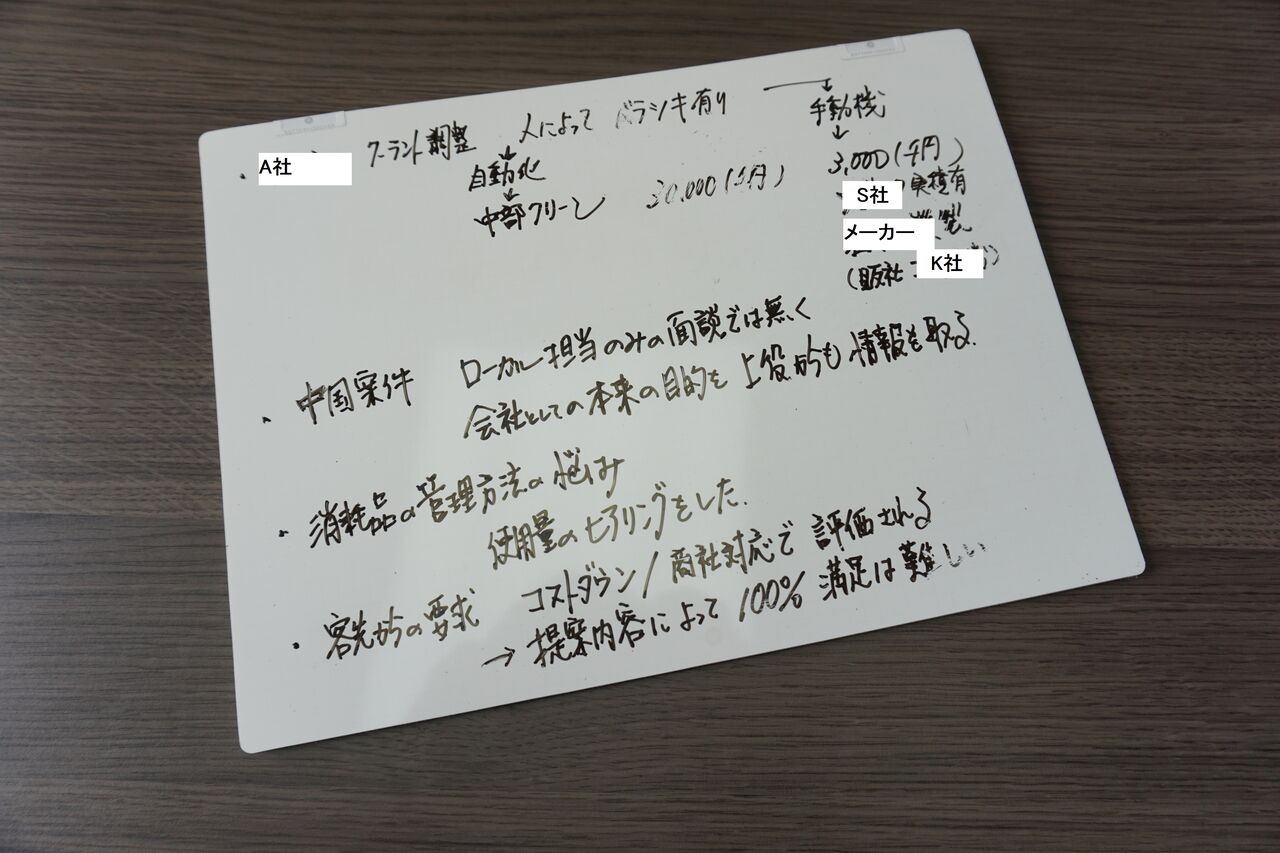 ・A社 クーラント調整 人によって バラツキ有り → 手動機
↓ ↓
自動化 3,000(千円)
↓
中部クリーン 30,000(千円)
S社 実積有
メーカー 製
(販社 K社
・中国案件 ローカル担当のみの面談では無く
会社としての本来の目的を 上役からも情報を取る.
・消耗品の管理方法の悩み
使用量のヒアリングをした.
・客先からの要求 コストダウン/商社対応で評価される
→提案内容によって100%満足は難しい